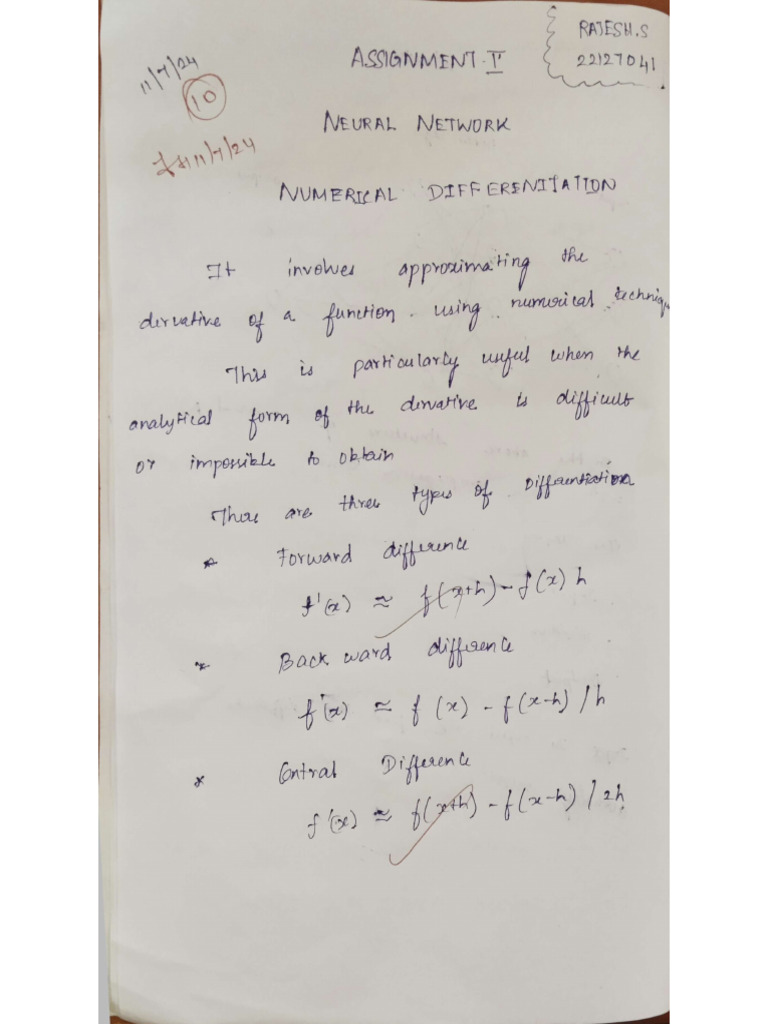 RAJESH.S
22127041
11/7/24
10
11/7/24
ASSIGNMENT-I
NEURAL NETWORK
NUMERICAL DIFFERENITATION
It involves approximating the
derivative of a function. using numerical techniqu
This is particularly useful when the
analytical form of the derivative is difficult
or impossible to obtain
There are three types of Differentiation
* Forward difference
f'(x) ≈ f(x+h) - f(x) h
* Backward difference
f'(x) ≈ f(x) - f(x-h) / h
* Central Difference
f'(x) ≈ f(x+h) - f(x-h) / 2h